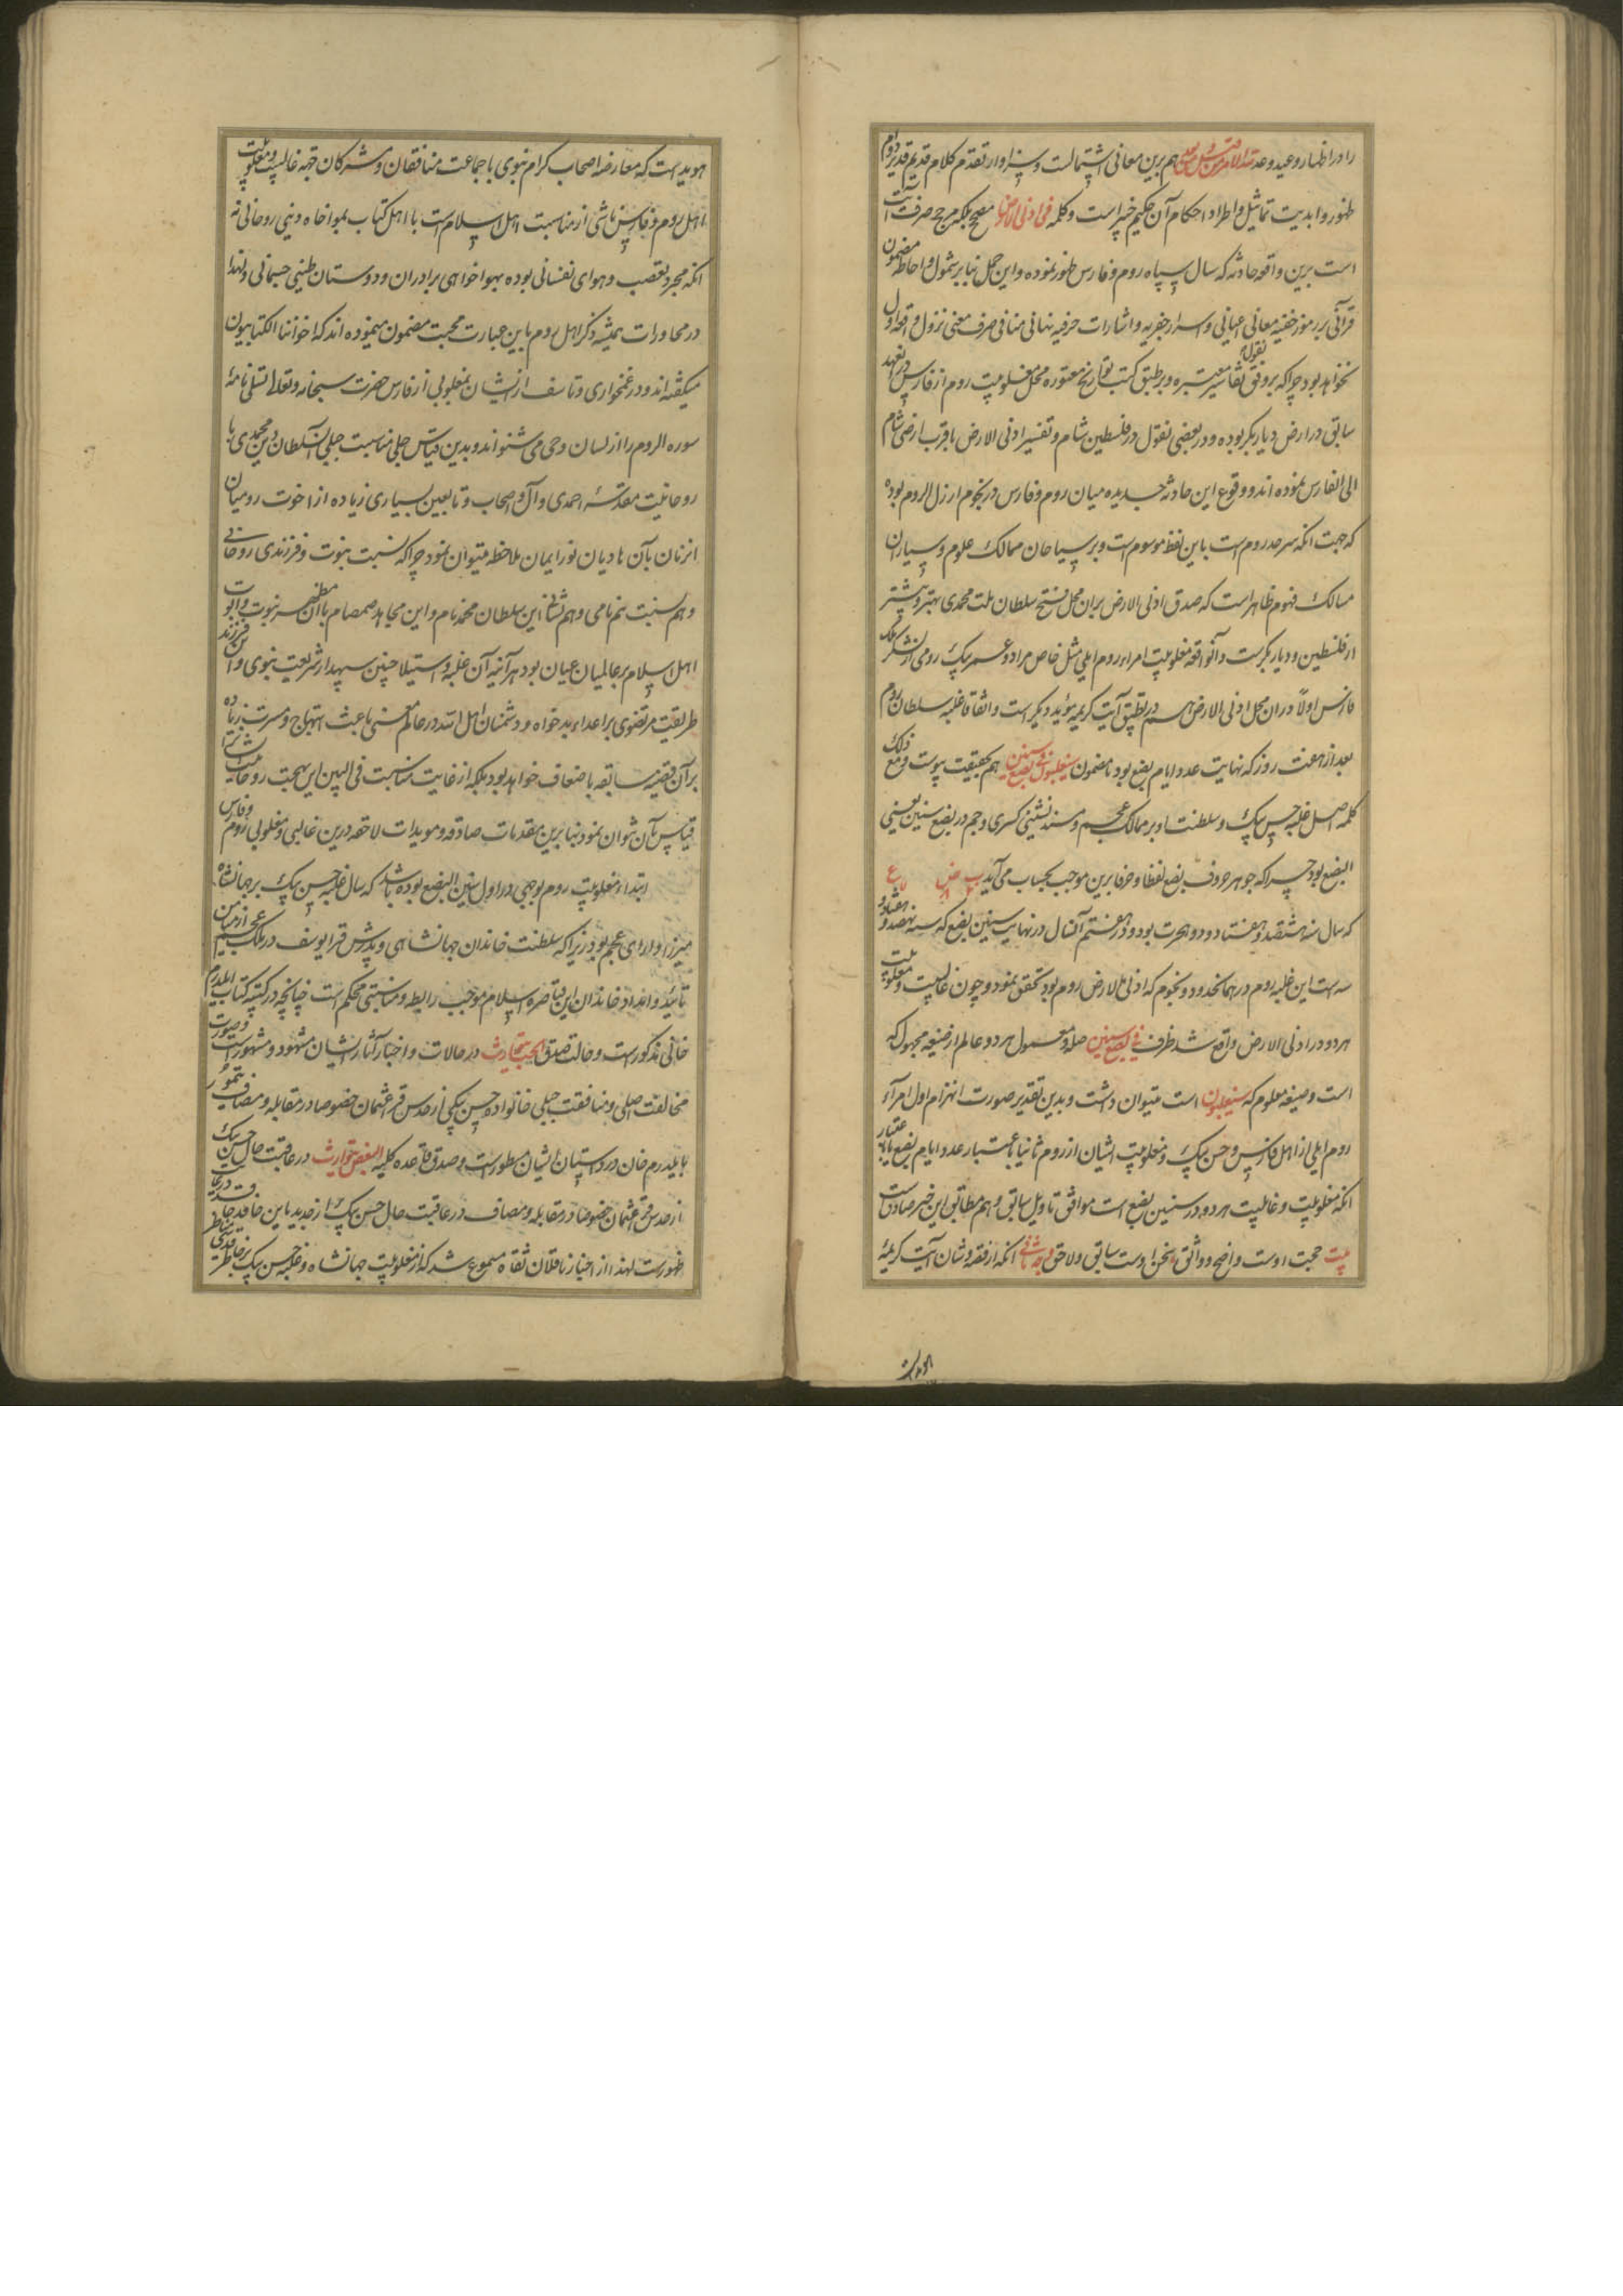 را در اظهار وعید و عد لله الامر من قبل و من بعد هم برین معانی اشتمالست و سزاوار تقدم کلام قدیم قدیر دوام
ظهور و ابدیت تماثیل و اطراد احکام آن حکیم خبیر است و کلمه فی ادنی الارض مصحح بلکه مرجح صرف آیت
است برین واقعه حادثه که سال سپاه روم و فارس ظهور نموده و این حمل بنا بر شمول و احاطه مضمون
قرآنی بر رموز خفیه معانی اعیانی و اسرار جفریه و اشارات حرفیه نهانی منافی صرف معنی نزول و اقوال اول
نخواهد بود چرا که بر وفق نقول تفاسیر معتبره و بر طبق کتب تواریخ محل مغلوبیت روم از فارس در عهد
سابق در ارض دیاربکر بوده و در بعضی نقول در فلسطین شام و تفسیر ادنی الارض باقرب ارض شام
الی الفارس نموده‌اند و وقوع این حادثه جدیده میان روم و فارس در تخوم ارزل الروم بوده
که جهت آنکه سرحد روم است باین لفظ موسوم است و بر سیاحان ممالک علوم و سیاران
مسالک فهوم ظاهر است که صدق ادنی الارض بران محل فتح سلطان ملت محمدی بهتر و بیشتر
از فلسطین و دیاربکرست و آنواقعه مغلوبیت امراء روم ایلی مثل خاص مراد و عمر بیک رومی از لشکر ملک
فارس اولا دران محل ادنی الارض هم در تطبیق آیت کریمه مؤید دیگر است و اتفاقا غلبه سلطان روم
بعد از هفت روز که نهایت عدد ایام بضع بود با مضمون سیغلبون فی بضع سنین هم بحقیقت پیوست و مع ذلک
کلمه اصل غلبه حسن بیک و سلطنت او بر ممالک عجم و مسند نشینی کسری و جم در بضع سنین یعنی
البضع بود چرا که جوهر حروف بضع لفظا و حرفا برین موجب بحساب می‌آید ب ض ع
که سال سنه هشتصد و هفتاد و دو هجرت بود و در هفتم آنسال در نهایت سنین بضع که سنه نهصد و هفتاد و
سه است این غلبه دوم در همان حدود و تخوم که ادنی الارض روم بود تحقق نمود و چون غالبیت و مغلوبیت
هر دو در ادنی الارض واقع شد ظرف فی بضع سنین صله و معمول هر دو عالم از صیغه مجهول که
است و صیغه معلوم که سیغلبون است میتوان داشت و بدین تقدیر صورت انهزام اول امراء
روم ایلی از اهل فارس و حسن بیک و مغلوبیت ایشان از روم ثانیا باعتبار عدد ایام بضع باعتبار
آنکه مغلوبیت و غالبیت هر دو در سنین بضع است موافق تاویل سابق و هم مطابق این خبر صادقست
بیت حجت اوست واضح و واثق سخن اوست سابق و لاحق وجه ثانی آنکه از فقره و شان آیت کریمه
هویداست که معارضه اصحاب کرام نبوی با جماعت منافقان و مشرکان جهه غالبیت و مغلوبیت
اهل روم و فارس ناشی از مناسبت اهل اسلام است با اهل کتاب بمواخاه دینی روحانی نه
آنکه مجرد تعصب و هوای نفسانی بوده بهواخواهی برادران و دوستان طینی جسمانی و لهذا
در محاورات همیشه ذکر اهل روم باین عبارت محبت مضمون مینموده‌اند که اخواننا الکتابیون
میگفته‌اند و در غمخواری و تاسف ازیشان بمغلوبی از فارس حضرت سبحانه و تعالی تسلی نامه
سوره الروم را از لسان وحی می شنواند و بدین قیاس جلی مناسبت جبلی آن سلطان دین محمدی با
روحانیت مقدسه احمدی و آل و اصحاب و تابعین بسیاری زیاده از اخوت رومیان
انزمان بآن هادیان نور ایمان ملاحظه میتوان نمود چرا که نسبت بنوت و فرزندی روحانی
و هم نسبت هم نامی و هم شانی این سلطان محمد نام و این مجاهد صمصام با آن مظهر نبوت و ابوت
اهل اسلام بر عالمیان عیان بود هر آینه آن غلبه و استیلا چنین سپهدار شریعت نبوی و آن فرزند
طریقت مرتضوی بر اعداء بدخواه و دشمنان اهل الله در عالم معنی باعث ابتهاج و مسرت زیاده
بر آن قضیه سابقه باضعاف خواهد بود بلکه از غایت مناسبت فی البین این بهجت روحانیت را
قیاس بآن نتوان نمود بنا برین مقدمات صادقه و مویدات لاحقه درین غالبی و مغلوبی روم و فارس
ابتداء مغلوبیت روم بوجهی در اول سنین البضع بوده باشد که سال غلبه حسن بیک بر جهانشاه
میرزا و دارای عجم بود زیرا که سلطنت خاندان جهانشاهی و پدرش قرا یوسف در ملک عجم از میامن
تائید و امداد خاندان این قیاصره اسلام موجب رابطه و مناسبتی محکم است چنانچه در کتیبه کتاب ایلدرم
خانی مذکورست و حالت صدق الحب یتوارث در حالات و اخبار آثار ایشان مشهود و مشهورست و صورت
مخالفت اصلی و منافقت جبلی خانواده حسن بیکی از جدش قرا عثمان خصوصا در مقابله و مصاف تیمور
با یلدرم خان در داستان ایشان مسطورست و صدق قاعده کلیه البغض یتوارث در عاقبت حال حسن بیک
از جدش قرا عثمان خصوصا در مقابله و مصاف در عاقبت حال حسن بیک از جدید باین خاقد
ظهورست لهذا از اخبار ناقلان ثقاه مسموع شد که از مغلوبیت جهانشاه و غلبه حسن بیک بر خاطر